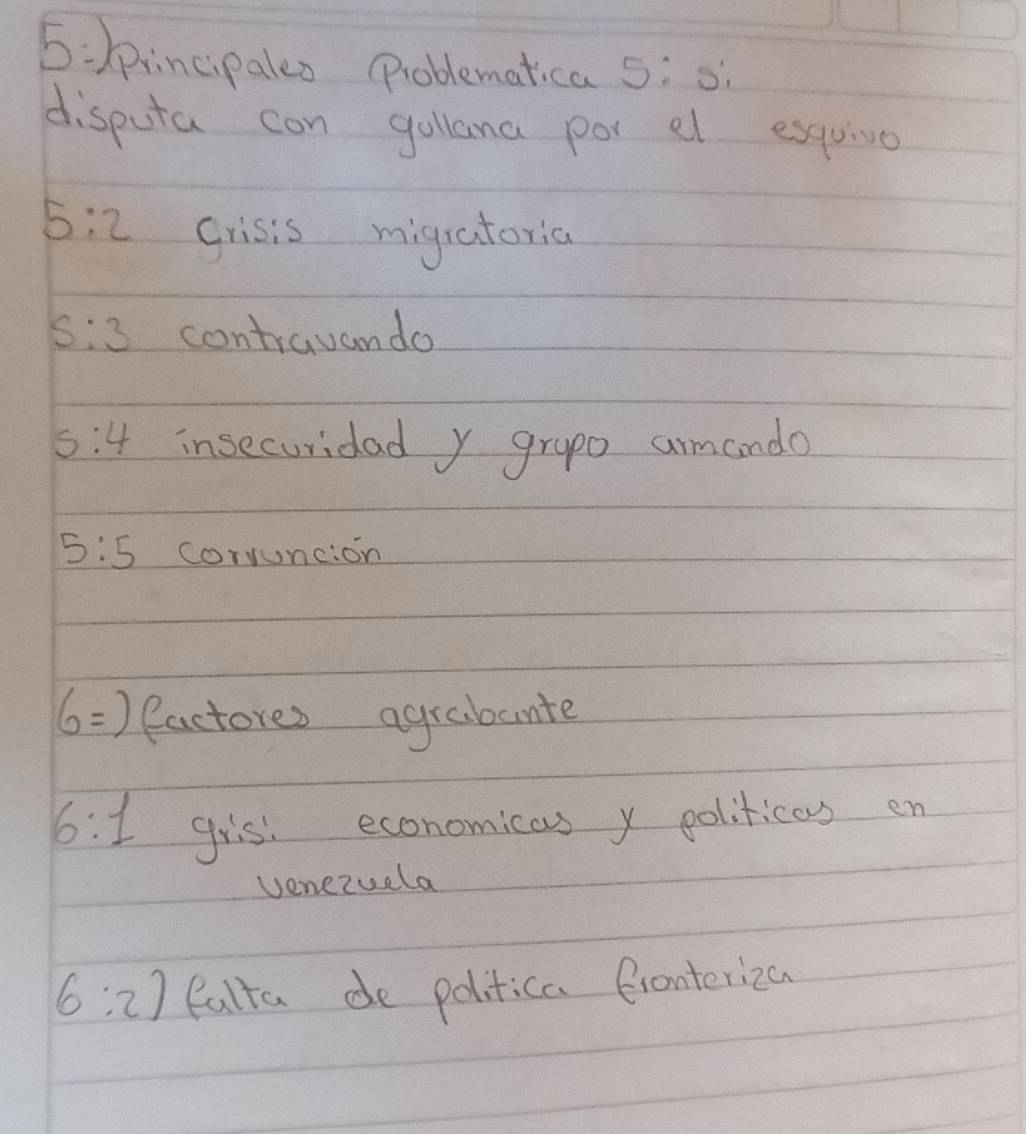 5=) Principales Problematica 5: si
disputa con gullana por el esquivo
5:2 grisis migratoria
5:3 contravando
5:4 insecuridad y grupo armando
5:5 corruncion
6=) factores agrabante
6:1 grisi economicas y politicas en
venezuela
6:2) falta de politica fronteriza